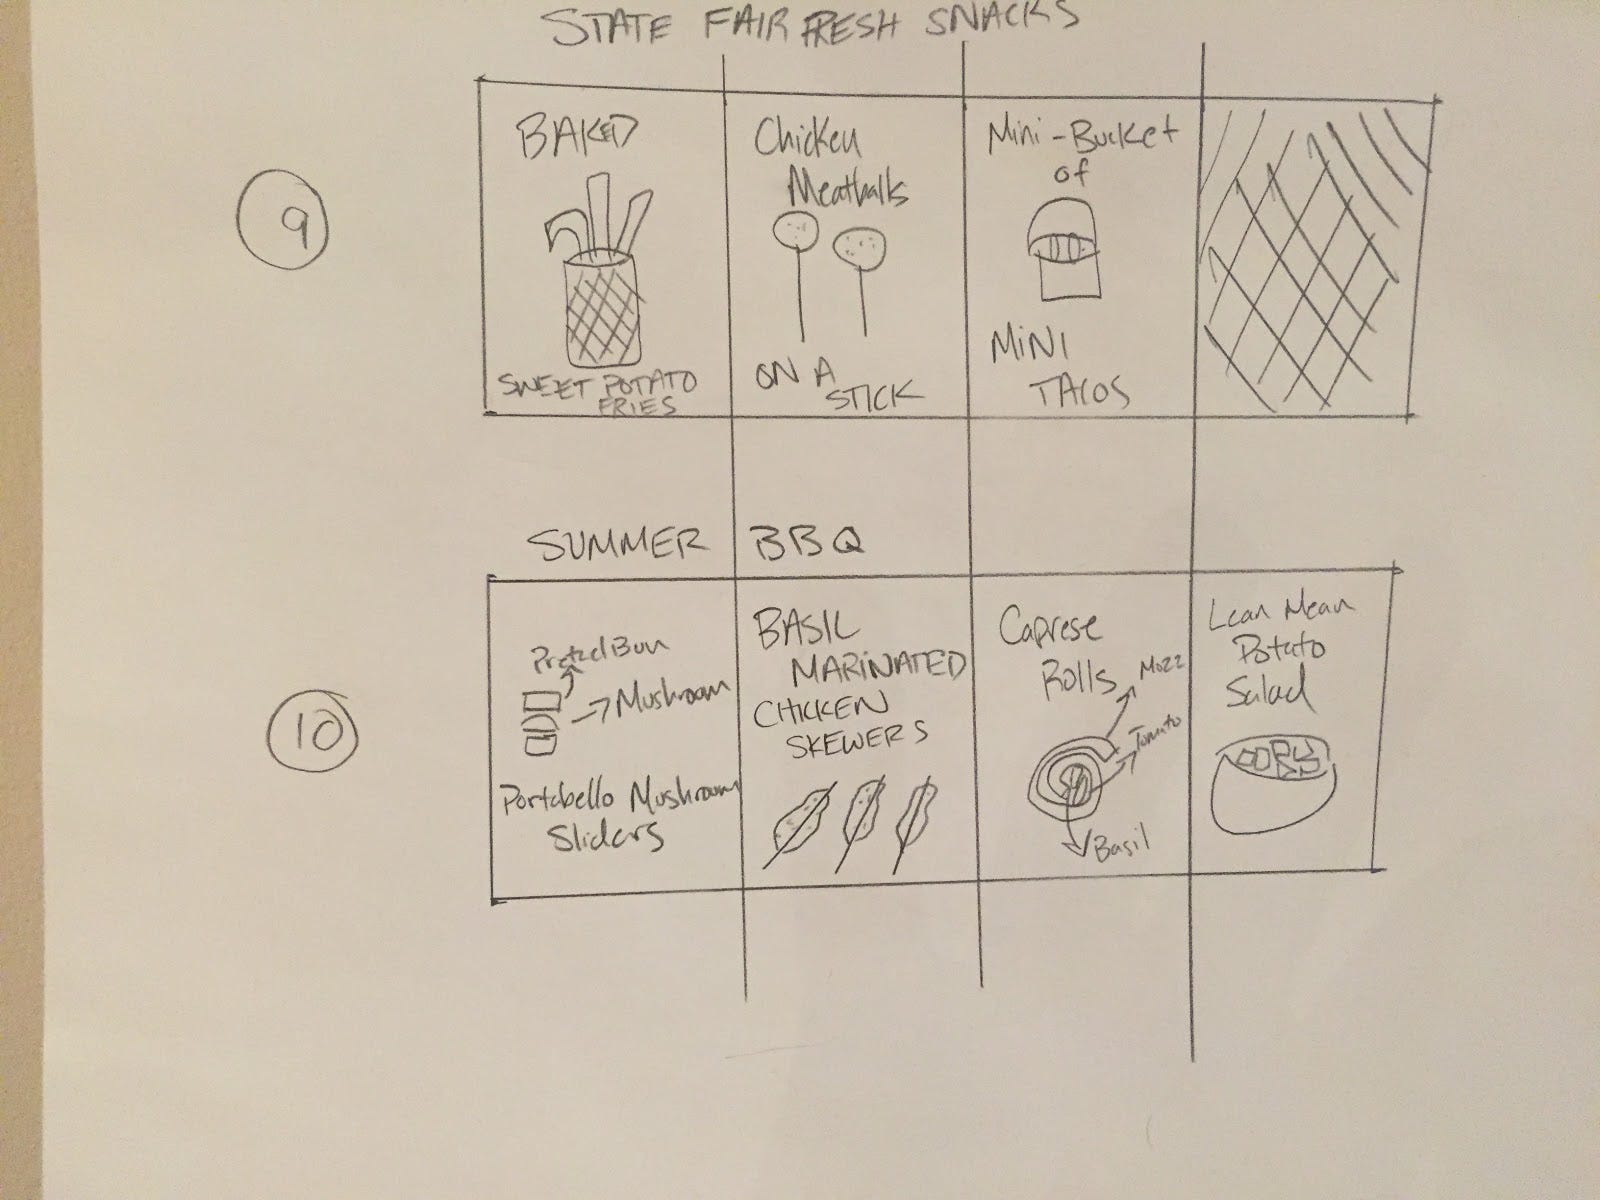 STATE FAIR FRESH SNACKS
9
BAKED
SWEET POTATO
FRIES
Chicken
Meatballs
ON A
STICK
Mini-Bucket
of
MINI
TACOS
SUMMER BBQ
10
Pretzel Bun
Mushroom
Portabello Mushroom
Sliders
BASIL
MARINATED
CHICKEN
SKEWERS
Caprese
Rolls
Mozz
Tomato
Basil
Lean Mean
Potato
Salad